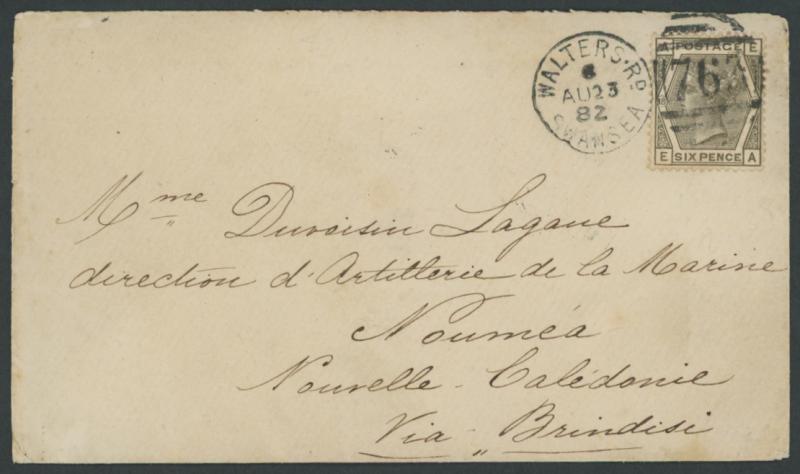 WALTERS·RD
6
AU23
82
SWANSEA
A POSTAGE E
763
E SIX PENCE A
Mme Duvoisin Lagane
direction d'Artillerie de la Marine
Nouméa
Nouvelle-Calédonie
Via Brindisi